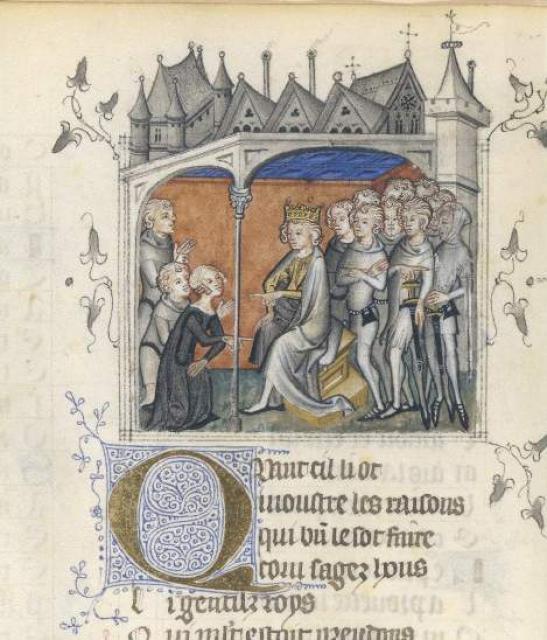 Quant cil li ot
moustre les raisons
qui bn̄ le sot faire
com sages hons
Li gentilz roys